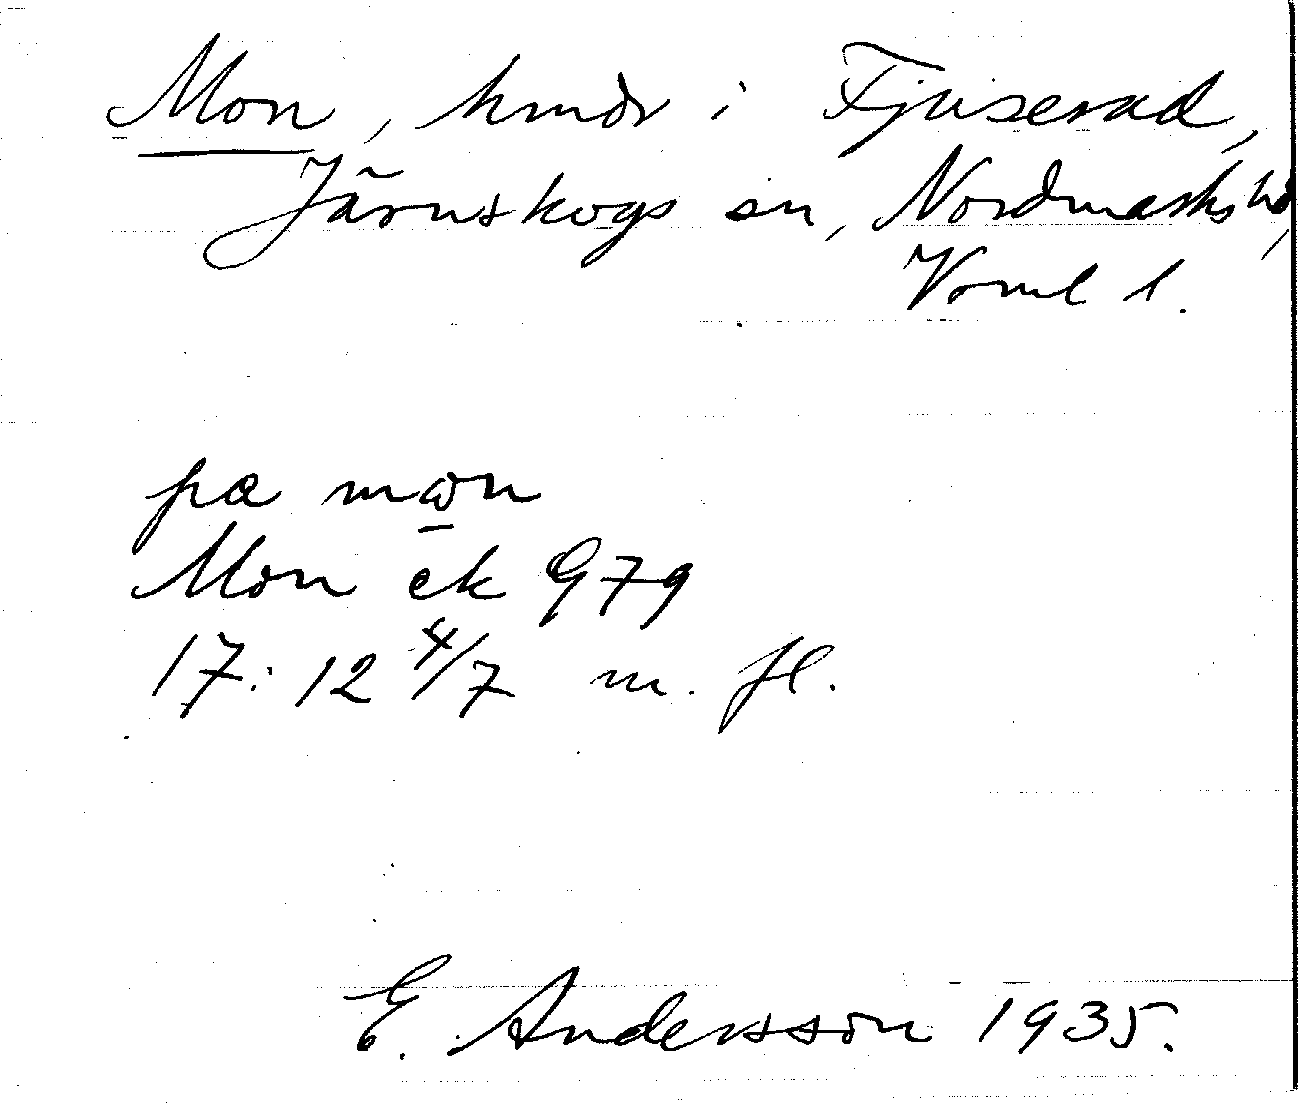 Mon, hmdr i Fjuserud,
Järnskogs sn, Nordmarks hd,
Värml l.
pa mωn
Mon ek 979
17:12 4/7 m. fl.
E. Andersson 1935.